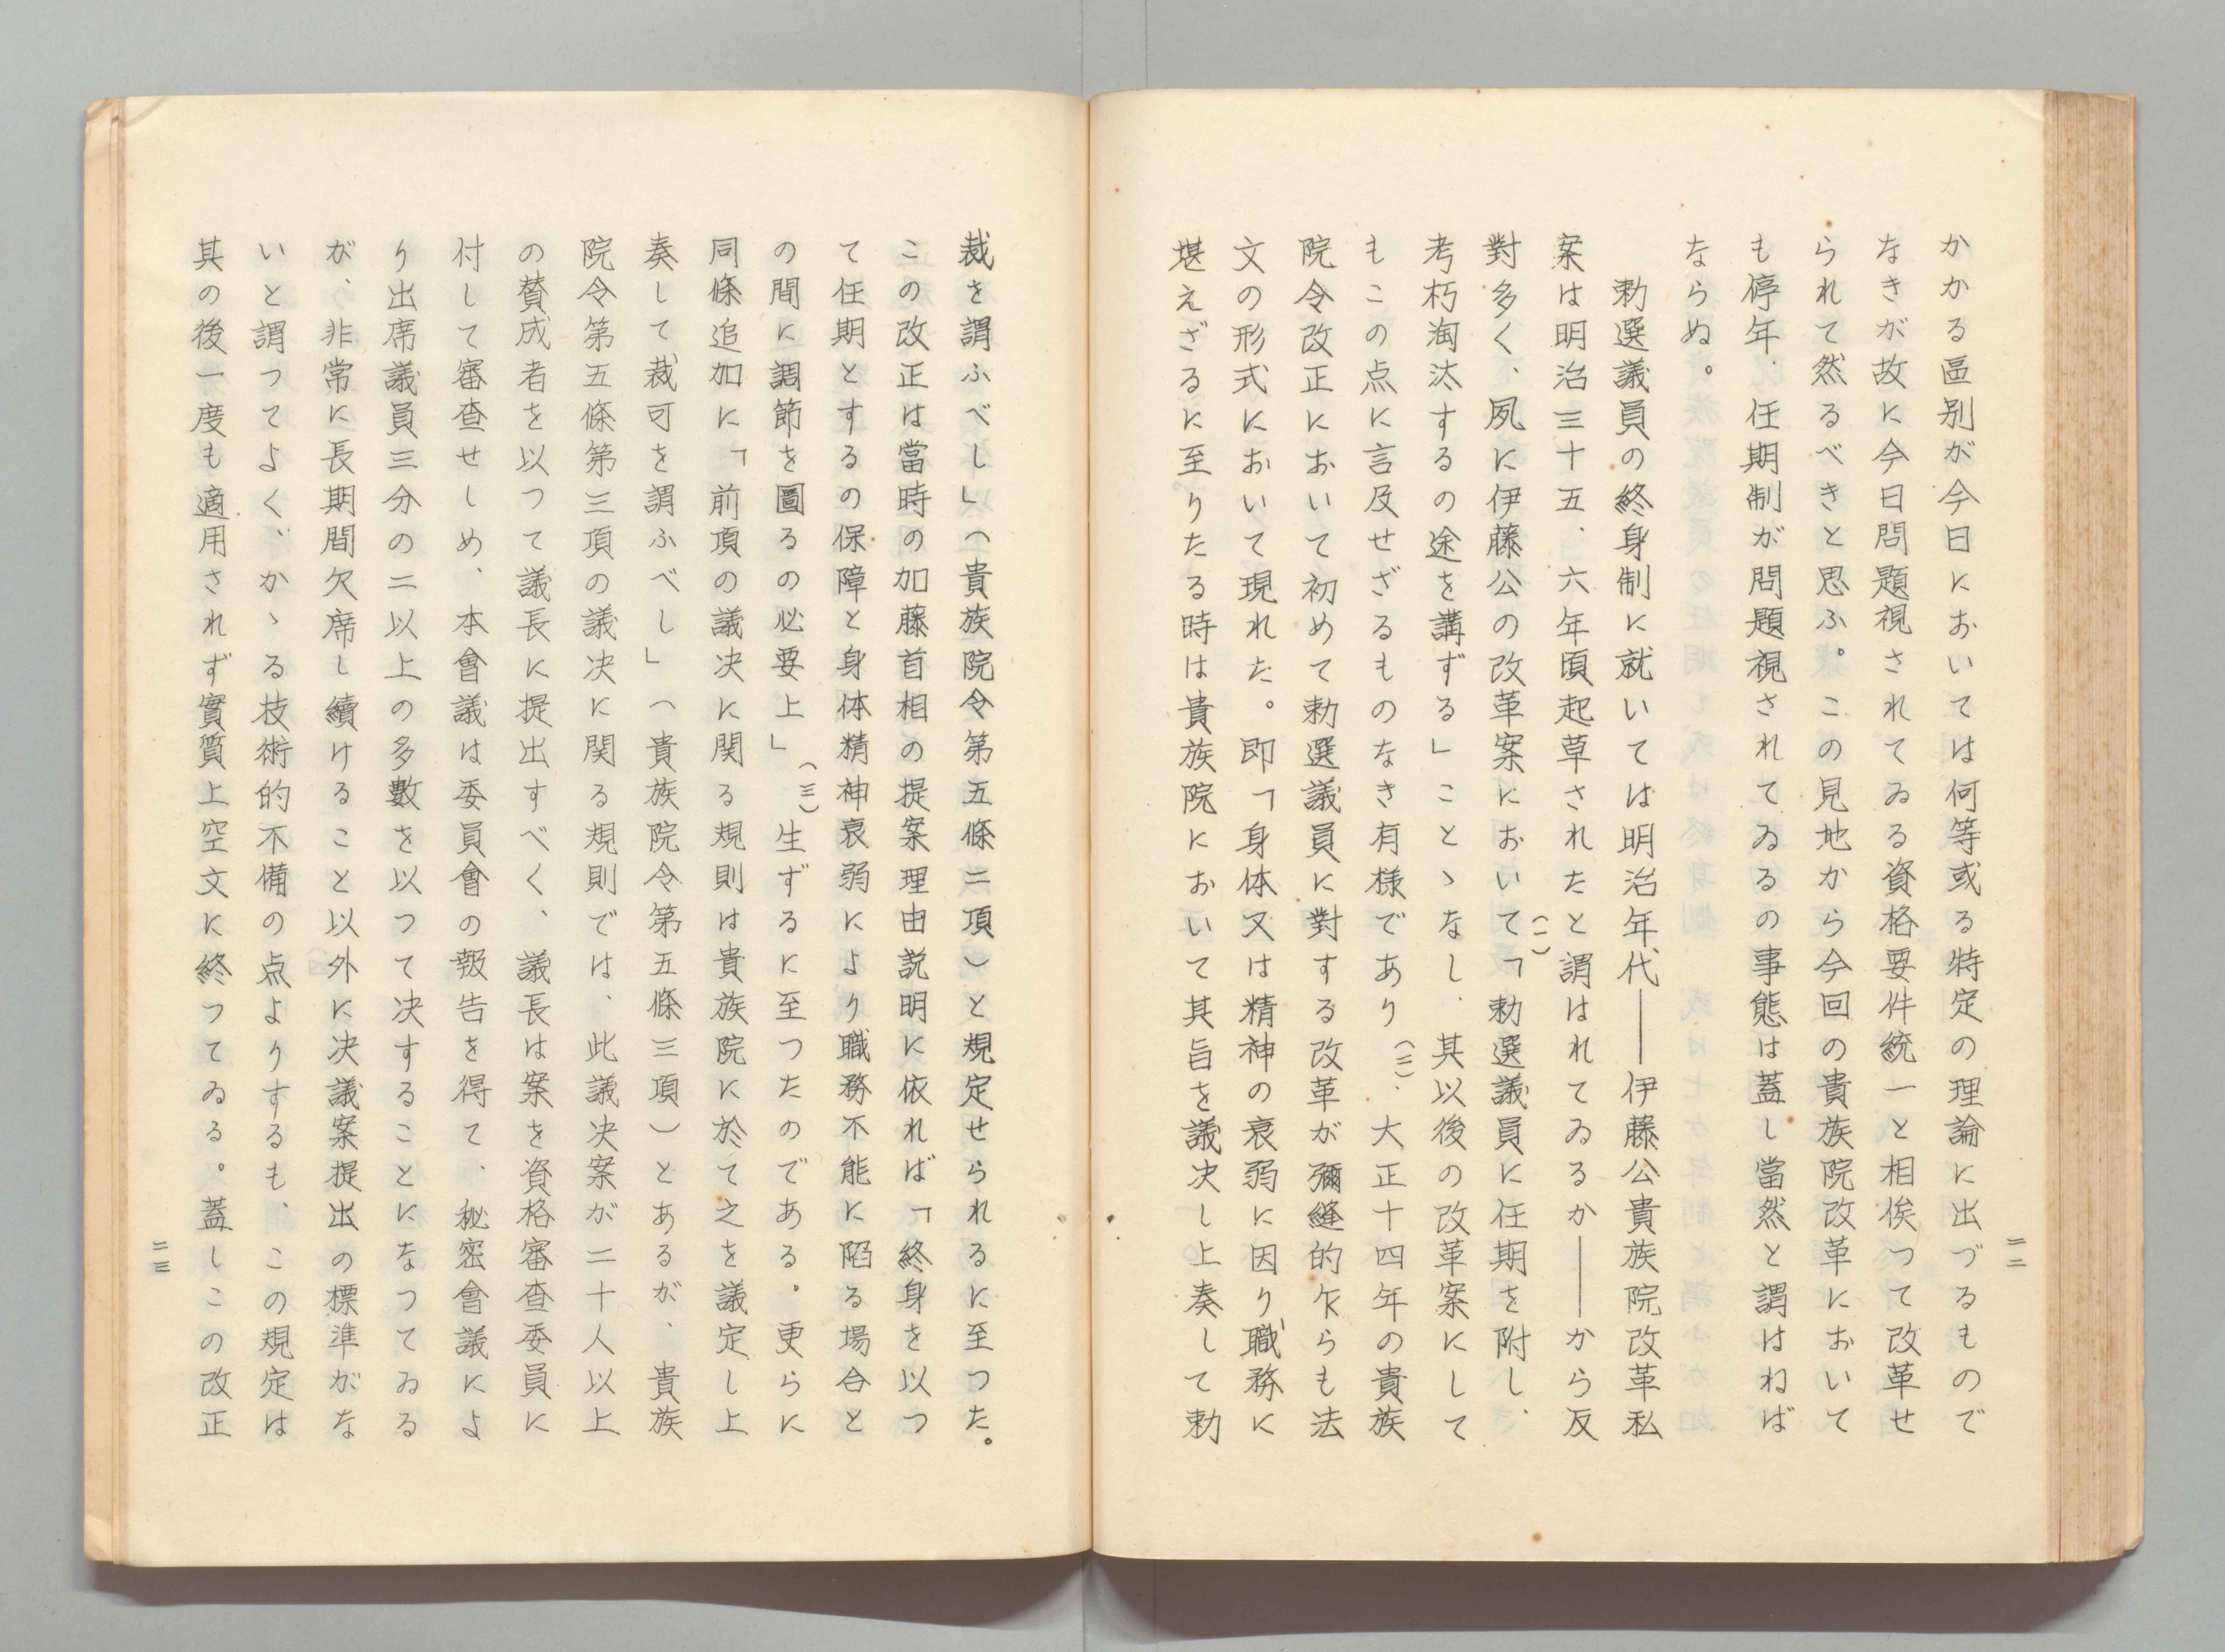 かかる區別が今日においては何等或る特定の理論に出づるもので
なきが故に今日問題視されてゐる資格要件統一と相俟つて改革せ
られて然るべきと思ふ。この見地から今回の貴族院改革において
も停年、任期制が問題視されてゐるの事態は蓋し當然と謂はねば
ならぬ。
勅選議員の終身制に就いては明治年代――伊藤公貴族院改革私
案は明治三十五、六年頃起草されたと謂はれてゐるか――から反
對多く、夙に伊藤公の改革案において(一)「勅選議員に任期を附し、
考朽淘汰するの途を講ずる」ことゝなし、其以後の改革案にして
もこの点に言及せざるものなき有様であり(二)、大正十四年の貴族
院令改正において初めて勅選議員に對する改革が彌縫的乍らも法
文の形式において現れた。即「身体又は精神の衰弱に因り職務に
堪えざるに至りたる時は貴族院において其旨を議決し上奏して勅
二二
裁を謂ふべし」(貴族院令第五條二項)と規定せられるに至つた。
この改正は當時の加藤首相の提案理由説明に依れば「終身を以つ
て任期とするの保障と身体精神衰弱により職務不能に陷る場合と
の間に調節を圖るの必要上」(三)生ずるに至つたのである。更らに
同條追加に「前項の議決に関る規則は貴族院に於て之を議定し上
奏して裁可を謂ふべし」(貴族院令第五條三項)とあるが、貴族
院令第五條第三項の議決に関る規則では、此議決案が二十人以上
の賛成者を以つて議長に提出すべく、議長は案を資格審査委員に
付して審査せしめ、本會議は委員會の報告を得て、秘密會議によ
り出席議員三分の二以上の多數を以つて決することになつてゐる
が、非常に長期間欠席し續けること以外に決議案提出の標準がな
いと謂つてよく、かゝる技術的不備の点よりするも、この規定は
其の後一度も適用されず實質上空文に終つてゐる。蓋しこの改正
二三